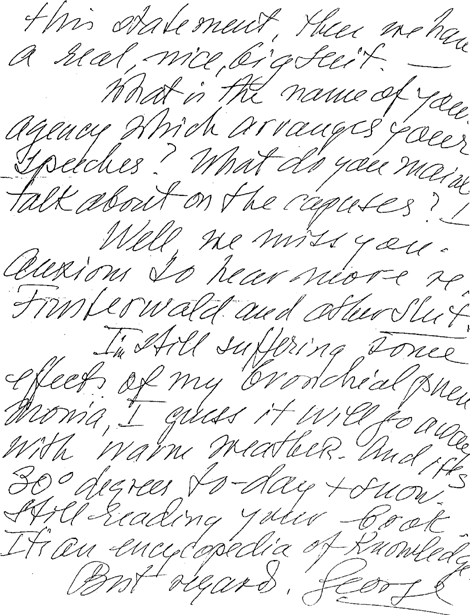 this statement, then we have
a real, nice, big suit. —
What is the name of your
agency which arranges your
speeches? What do you mainly
talk about on the capuses? I
Well, we miss you.
Anxious to hear more re.
Finsterwald and other shit.
I'm still suffering some
effects of my bronchial pneu
monia, I guess it will go away
with warm weather. And it's
30° degrees to-day + snow.
Still reading your book.
It's an encyclopedia of knowledge.
Best regard. George